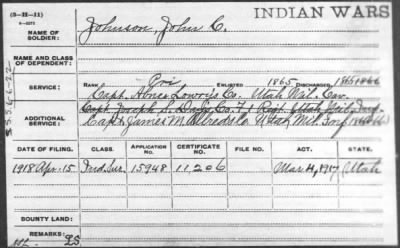 (3-II-11)
INDIAN WARS
NAME OF SOLDIER: Johnson, John C.
NAME AND CLASS OF DEPENDENT:
SERVICE: RANK Pri ENLISTED 1865 DISCHARGED 1866
Capt. Abner Lowry's Co. Utah Mil. Cav.
ADDITIONAL SERVICE: Capt. Joseph S. Day's Co. Utah Mil. Inf.
Capt. James M. Allred's Co. Utah Mil. Inf.
DATE OF FILING. CLASS. APPLICATION NO. CERTIFICATE NO. FILE NO. ACT. STATE.
1918 Apr. 15 Ind. Sur. 15948 11206 Mar 4, 1917 Utah
BOUNTY LAND:
REMARKS: